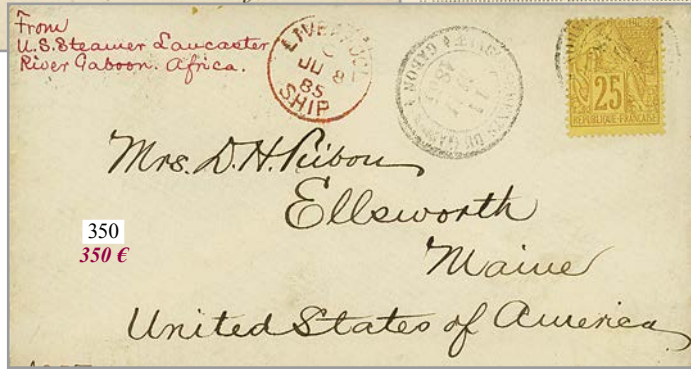 From
U.S. Steamer Lancaster
River Gaboon. Africa.
LIVERPOOL
JU 8
85
SHIP
GABON
25
REPUBLIQUE FRANCAISE
Mrs. D. H.
Ellsworth
Maine
United States of America
350
350 €